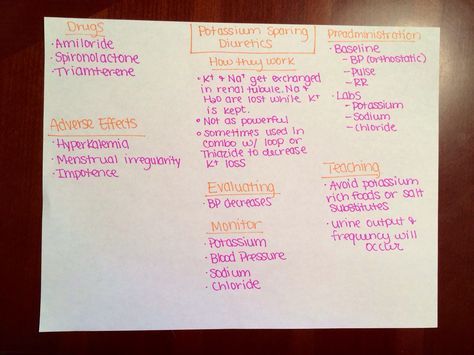 Drugs
· Amiloride
· Spironolactone
· Triamterene
Adverse Effects
· Hyperkalemia
· Menstrual irregularity
· Impotence
Potassium Sparing
Diuretics
How they work
· K+ & Na+ get exchanged
in renal tubule. Na &
H2O are lost while K+
is kept.
· Not as powerful
· Sometimes used in
combo w/ loop or
Thiazide to decrease
K+ loss
Evaluating
· BP decreases
Monitor
· Potassium
· Blood Pressure
· Sodium
· Chloride
Preadministration
· Baseline
- BP (orthostatic)
- Pulse
- RR
· Labs
- Potassium
- Sodium
- Chloride
Teaching
· Avoid potassium
rich foods or salt
substitutes
· urine output &
frequency will
occur